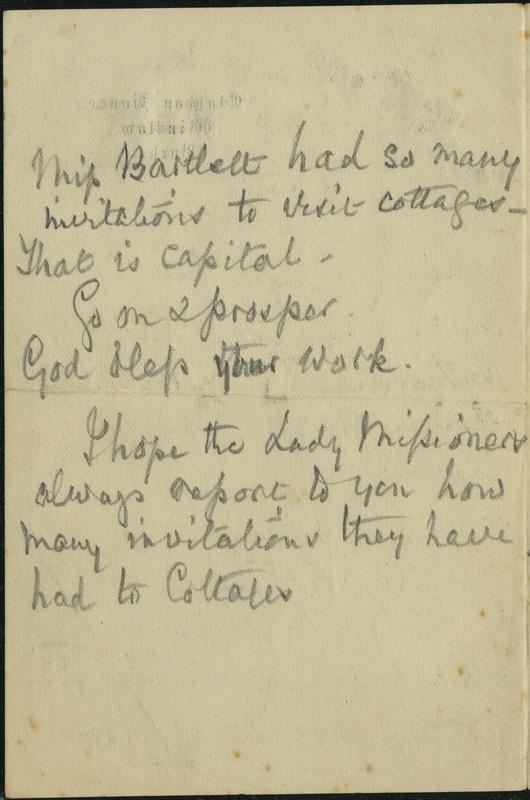 Miss Bartlett had so many
invitations to visit cottages –
That is capital –
Go on & prosper.
God bless your work.
I hope the Lady Missioners
always report to you how
many invitations they have
had to Cottages